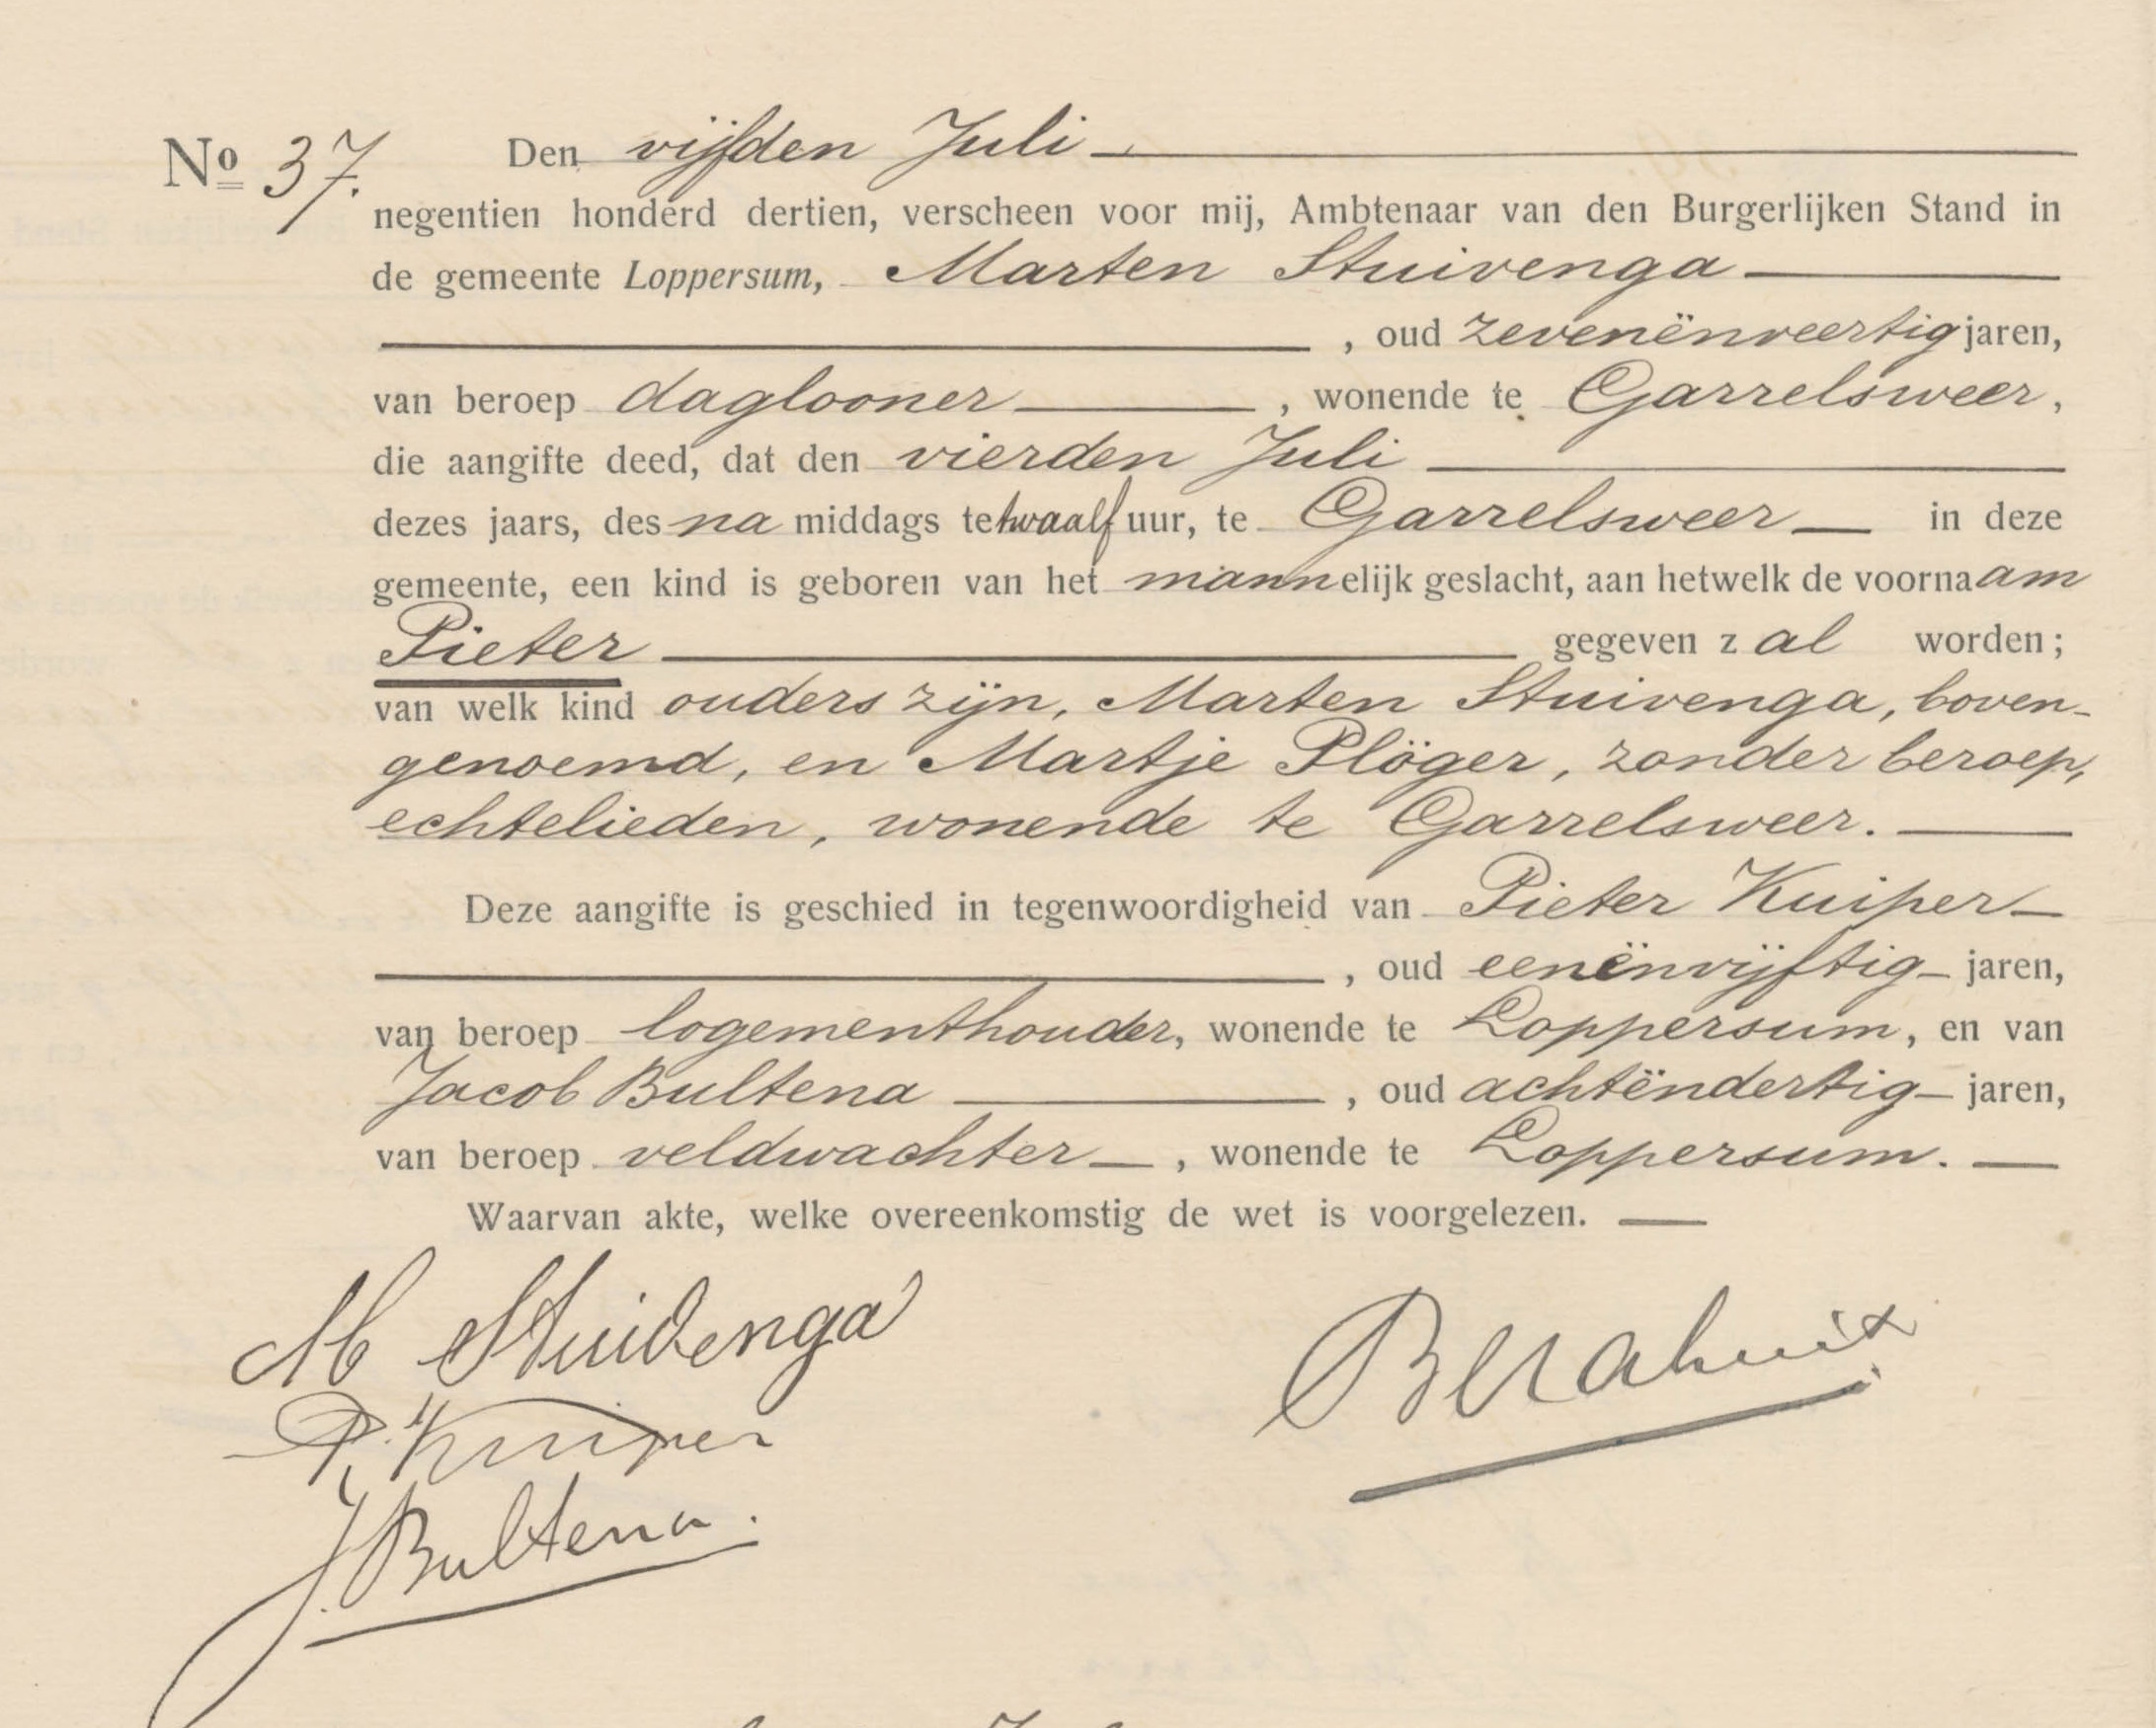 No 37. Den vijfden Juli
negentien honderd dertien, verscheen voor mij, Ambtenaar van den Burgerlijken Stand in
de gemeente Loppersum, Marten Stuivenga
, oud zevenënveertig jaren,
van beroep daglooner, wonende te Garrelsweer,
die aangifte deed, dat den vierden Juli
dezes jaars, des na middags te twaalf uur, te Garrelsweer in deze
gemeente, een kind is geboren van het mannelijk geslacht, aan hetwelk de voornaam
Pieter gegeven zal worden;
van welk kind ouders zijn, Marten Stuivenga, boven-
genoemd, en Martje Plöger, zonder beroep,
echtelieden, wonende te Garrelsweer.
Deze aangifte is geschied in tegenwoordigheid van Pieter Kuiper
, oud eenënvijftig jaren,
van beroep logementhouder, wonende te Loppersum, en van
Jacob Bultena, oud achtëndertig jaren,
van beroep veldwachter, wonende te Loppersum.
Waarvan akte, welke overeenkomstig de wet is voorgelezen.
M Stuivenga
P. Kuiper
J Bultena.